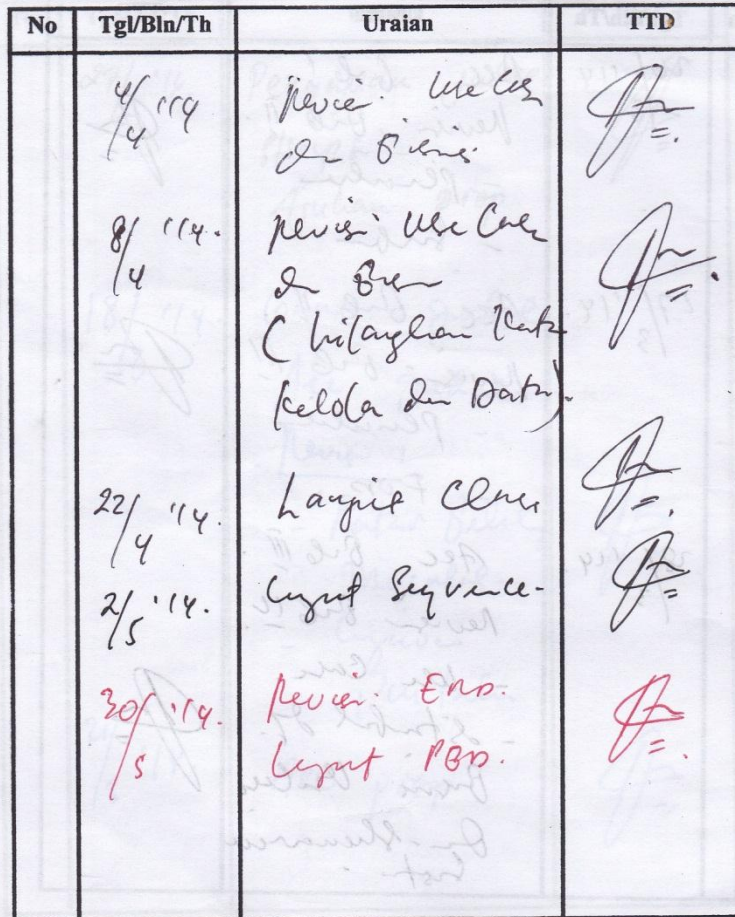 No Tgl/Bln/Th Uraian TTD
4/4 '14 Revisi Use Case
dan Bisnis
8/4 '14. Revisi Use Case
dan
( hilangkan Kata
Kelola dan Data).
22/4 '14 Lanjut Class
2/5 '14. Lanjut Sequence-
30/5 '14. Revisi. ERD.
Lanjut